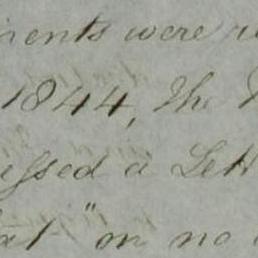 ments were
1844, the
essed a Lett
at "on no